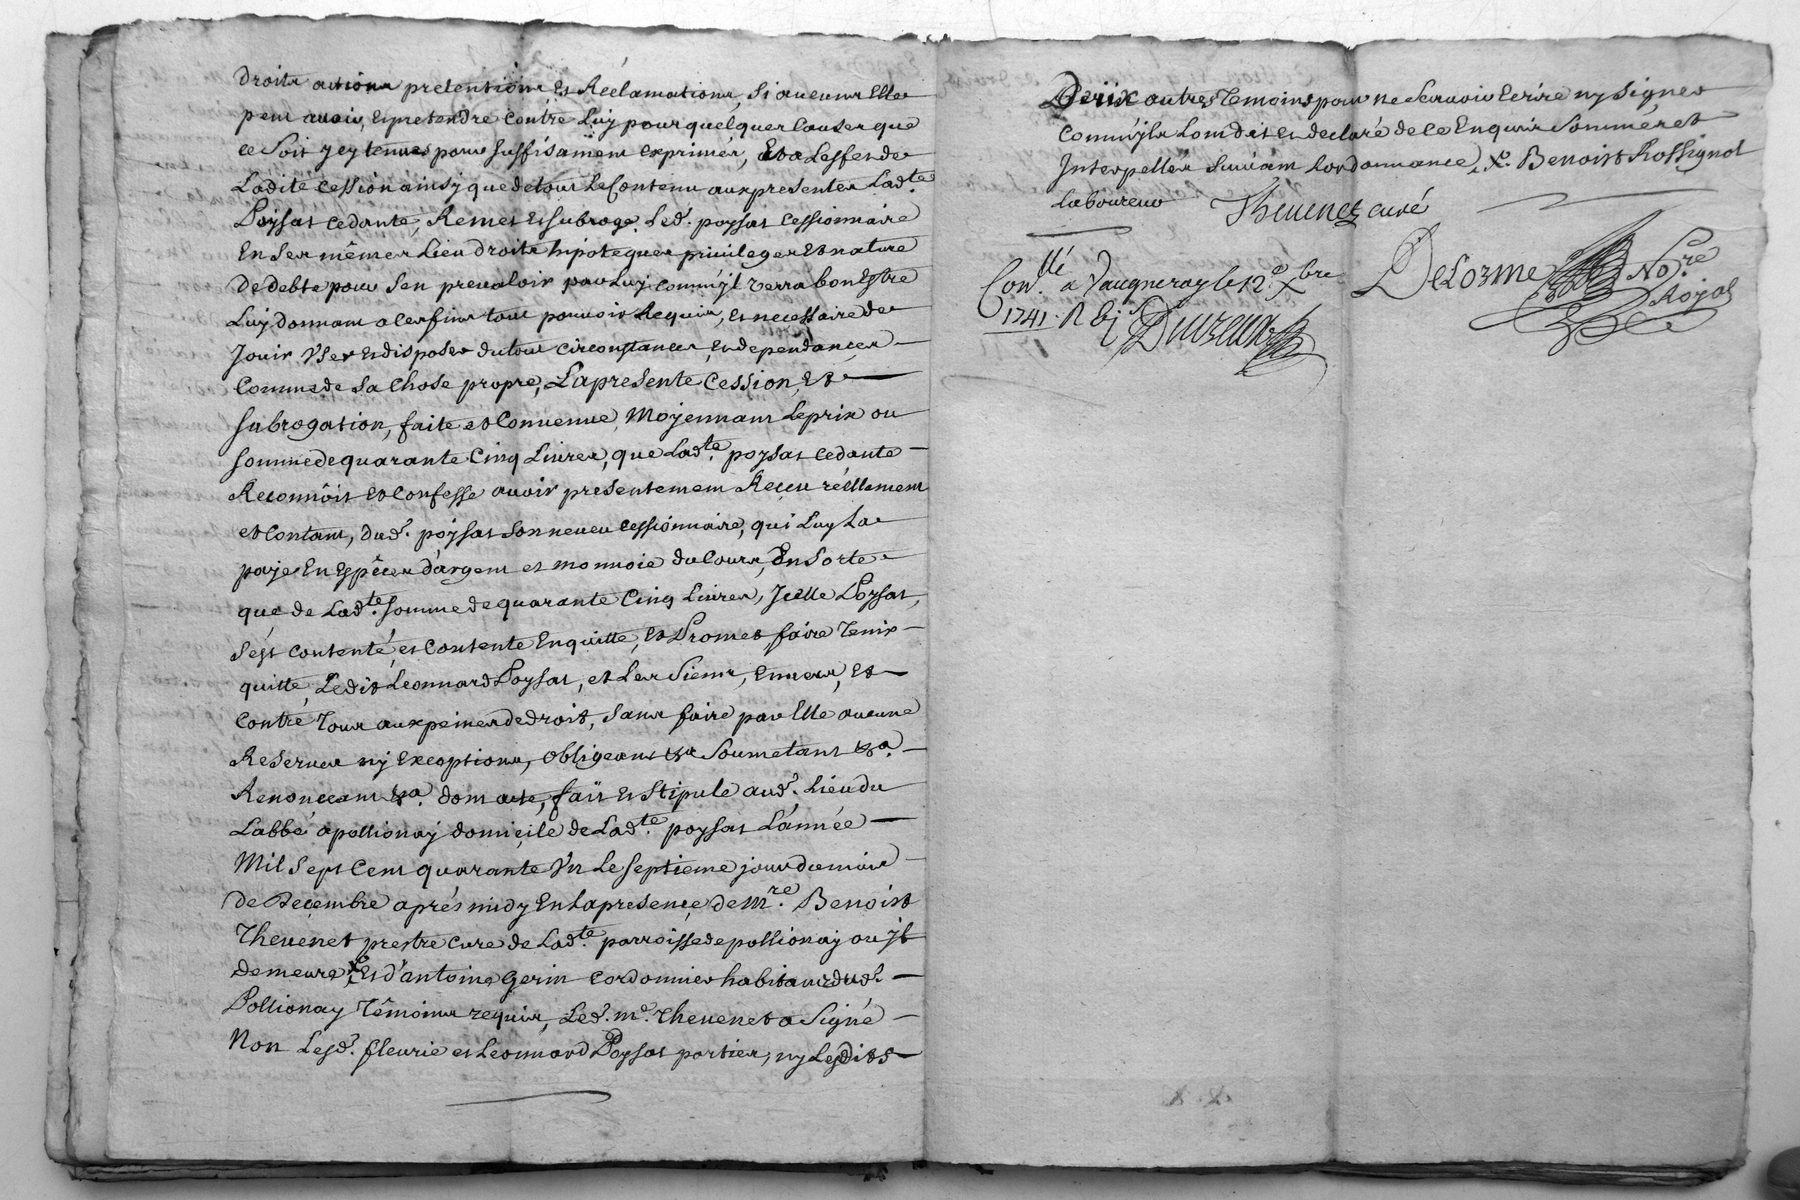 droits actions pretentions Et Réclamations, Si aucuns Elle
peut avoir, et pretendre contre Luy pour quelques Causes que
ce Soit y ey tenues pour Suffisament exprimer, Et a L'effet de
Ladite Cession ainsy que de tout Le Contenu aux presentes Ladte.
Poysat cedante, Remet Et Subroge Led. poysat Cessionnaire
En Ses mêmes Lieu droits hipoteques privileges Et nature
De debte pour Sen prevaloir par Luy comm'jl verra bon Estre
Luy donnant a ces fins tout pouvoir Requis, et necessaire de
Jouir V'ser Et disposer du tout circonstances, Et dependances
Comme de Sa Chose propre, La presente Cession, Et
Subrogation, faite et Convenue, Moyennant Le prix ou
Somme de quarante Cinq Livres, que Ladte. poysat cedante
Reconnôit et Confesse avoir presentement Receu réellement
et Contant, dud. poysat Son neveu Cessionnaire, qui Luy La
paye En Espêces d'argent et monnoie du Cours, En Sorte
que de Ladte. Somme de quarante Cinq Livres, Jcelle Poysat,
S'est Contenté, et Contente En quitte, Et Promet faire Tenir
quitte, Ledit Leonnard Poysat, et Les Siens, Envers, Et
Contre Tous aux peines de droit, Sans faire par Elle aucune
Reserves ny Exceptions, obligeant &a Soumetant &a.
Renonceant &a. dont acte, faît Et Stipulé aud. Lieu du
Labbé apollionay domicile de Ladte. poysat L'année
Mil Sept Cent quarante V'n Le Septieme jour du mois
De Decembre aprés midy En La presence de Mre. Benoist
Thevenet prestre Curé de Ladte. parroisse de pollionay ou jl
demeure Et d'antoine Gerin Cordonnier habitant dud.
Pollionay Têmoins requis, Led. me. Thevenet a Signé
Non Lesd. fleurie et Leonnard Poysat parties, ny Lesdits
Gerin autres Temoins pour ne Scavoir Ecrire ny Signer
Comm'jls Lont dit et declaré de ce Enquis Sommér et
Interpellés Suivant Lordonnance, Benoist Rossignol
Laboureur Thevenet curé
Conllé a Vaugneray le 12e. Xbre
1741.
Delorme Nore
Royal